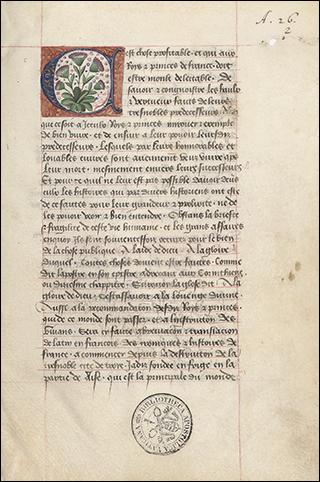 A. 26.
2
Cest chose profitable . et qui aux
Roys & princes de france . doit
estre moult delectable . De
sauoir & congnoistre les haulx
& vertueux faiz de leurs
tresnobles predecesseurs . A
que ce soit a iceulx Roys & princes exemple
de bien viure . et de ensuir a leur pouoir leurs
predecesseurs . Lesquelz par leurs honnorables et
louables euures sont aucunement
leur mort . mesmement enuers leurs successeurs
Et pour ce quil ne leur est pas possible
les histoires qui par diuers historiens ont esté
pour leur grandeur & prolixité . ne de
les pouoir veoir & bien entendre . Obstans la briefté
& fragilité de ceste vie humaine . et les grans affaires
esquelz ilz sont souuenteffoiz occupez pour le bien
de la chose publique . A laide de dieu . A la gloire
duquel . toutes choses doiuent estre faictes . Comme
dit lapostre en son epistre adrecant aux Corinthiens
ou chappitre . la glose dit . A la
gloire de dieu . Cest assauoir a la louenge diuine .
Aussi a la recommandation desdiz Roys & princes
qui de ce monde sont passez . et a linstruction des
viuans . Sera cy faicte abreuiacion & translacion
de latin en francois des croniques & histoires de
france . a commencer depuis la destruction de la
tresnoble cité de troye . Jadiz fondee en frige en la
partie de Aise . qui est la principale du monde
BIBLIOTHECA APOSTOLICA VATICANA